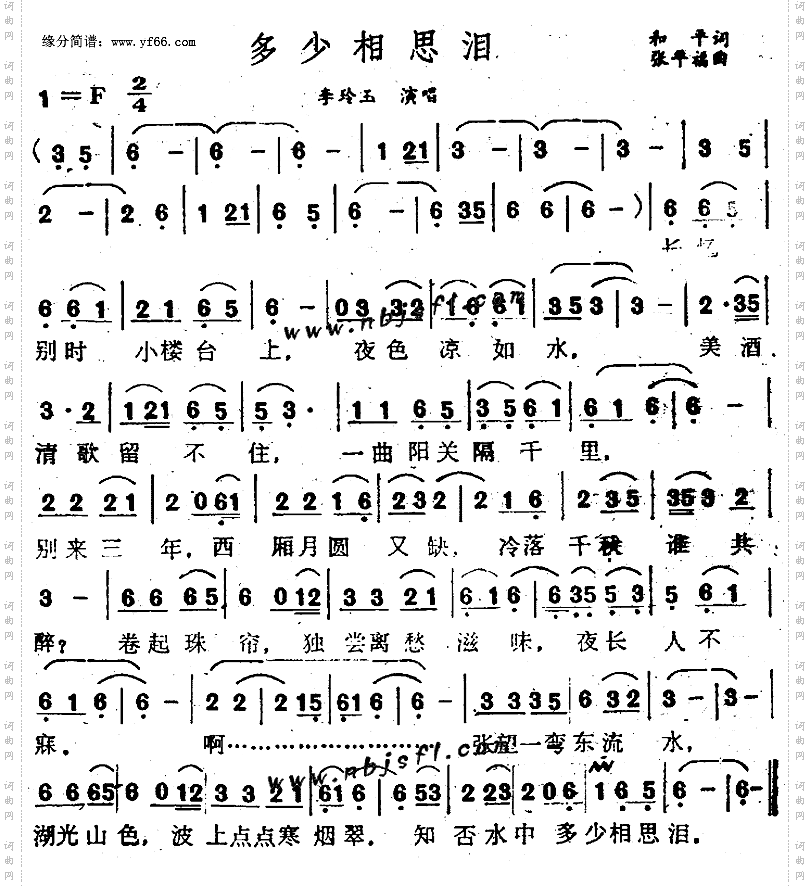 缘分简谱：www.yf66.com
多少相思泪
和平词
张平福曲
1=F 2/4
李玲玉 演唱
( 3 5 | 6 - | 6 - | 6 - | 1 21 | 3 - | 3 - | 3 - | 3 5 |
2 - | 2 6 | 1 21 | 6 5 | 6 - | 6 35 | 6 6 | 6 - ) | 6 6 5 |
长忆
6 6 1 | 21 65 | 6 - | 03 32 | 16 61 | 353 | 3 - | 2· 35 |
别时 小楼台 上， 夜色 凉 如 水， 美酒
3· 2 | 121 65 | 5 3· | 11 65 | 35 61 | 61 6 | 6 - |
清歌留 不 住， 一曲阳关隔 千 里，
22 21 | 2 061 | 22 16 | 232 | 2 16 | 2 35 | 353 2 |
别来三 年，西 厢月圆 又 缺， 冷落 千秋 谁 共
3 - | 66 65 | 6 012 | 33 21 | 616 | 635 53 | 5 61 |
醉？ 卷起珠 帘， 独 尝离愁 滋 味， 夜长 人不
616 | 6 - | 2 2 | 2 15 | 616 | 6 - | 3 335 | 6 32 | 3 - | 3 - |
寐。 啊…………………… 张望一弯东流 水，
www.nbjsfl.com
66 65 | 6 012 | 33 21 | 616 | 6 53 | 2 23 | 2 06 | 1 65 | 6 - | 6 - ‖
湖光山 色，波 上点点寒 烟翠， 知 否水中 多少相思泪。
www.nbjsfl.com
词曲网